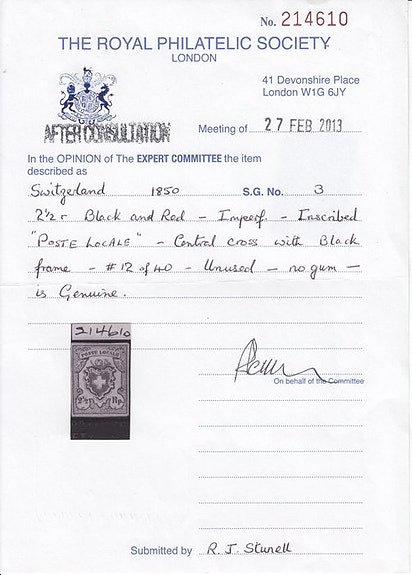 No. 214610
THE ROYAL PHILATELIC SOCIETY
LONDON
41 Devonshire Place
London W1G 6JY
AFTER CONSULTATION
Meeting of 27 FEB 2013
In the OPINION of The EXPERT COMMITTEE the item
described as
Switzerland 1850 S.G. No. 3
2½ r Black and Red - Imperf. - Inscribed
"POSTE LOCALE" - Central cross with Black
frame - #12 of 40 - Unused - no gum -
is Genuine.
214610
POSTE LOCALE
2½ Rp.
On behalf of the Committee
Submitted by R. J. Sturell